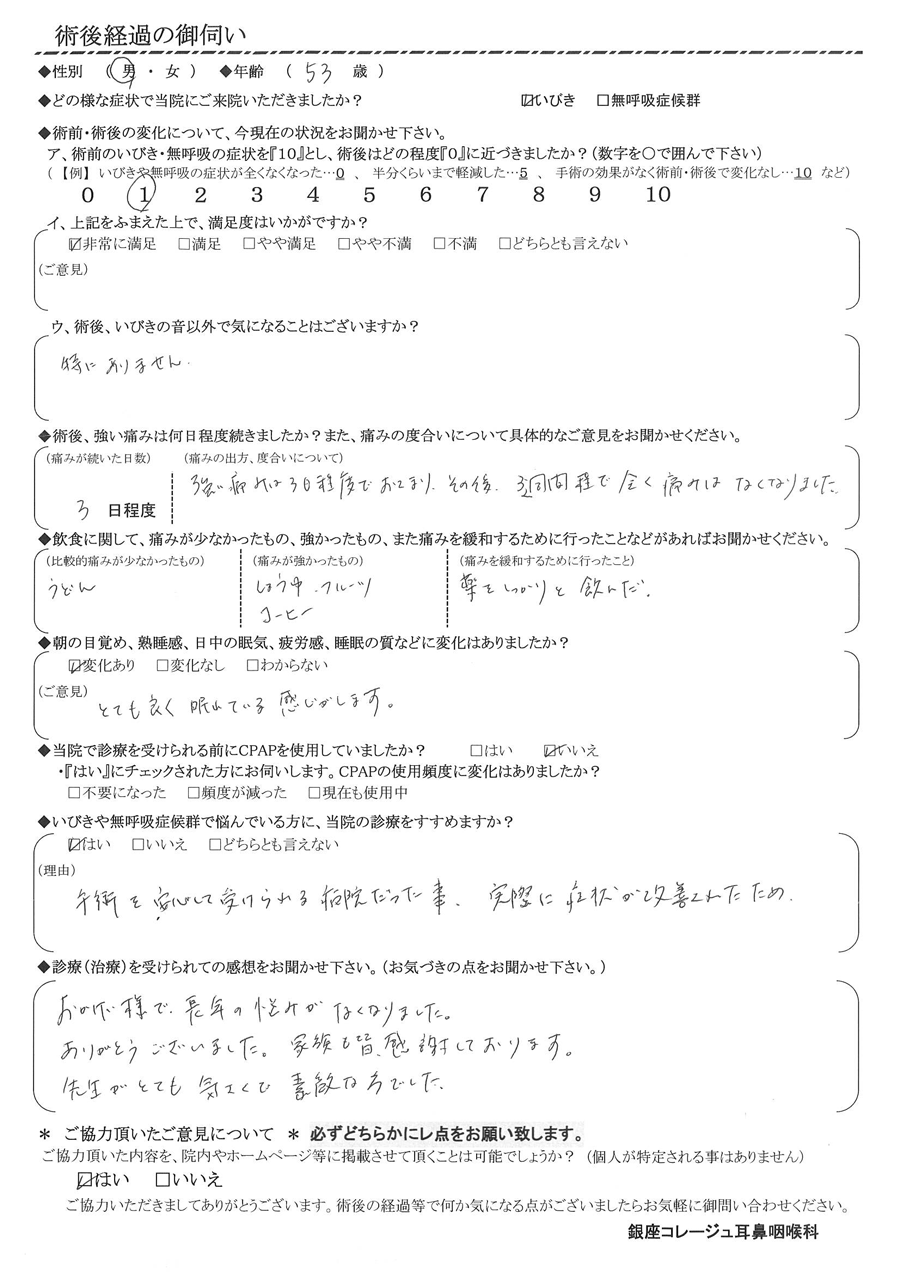 術後経過の御伺い
◆性別 （ 男 ・ 女 ） ◆年齢 （ 53 歳 ）
◆どの様な症状で当院にご来院いただきましたか？ ☑いびき □無呼吸症候群
◆術前・術後の変化について、今現在の状況をお聞かせ下さい。
ア、術前のいびき・無呼吸の症状を『10』とし、術後はどの程度『0』に近づきましたか？（数字を〇で囲んで下さい）
（【例】 いびきや無呼吸の症状が全くなくなった…0 、 半分くらいまで軽減した…5 、 手術の効果がなく術前・術後で変化なし…10 など）
0 1 2 3 4 5 6 7 8 9 10
イ、上記をふまえた上で、満足度はいかがですか？
☑非常に満足 □満足 □やや満足 □やや不満 □不満 □どちらとも言えない
（ご意見）
ウ、術後、いびきの音以外で気になることはございますか？
特にありません。
◆術後、強い痛みは何日程度続きましたか？また、痛みの度合いについて具体的なご意見をお聞かせください。
（痛みが続いた日数） （痛みの出方、度合いについて）
強い痛みは3日程度でおさまり、その後、3週間程で全く痛みはなくなりました。
3 日程度
◆飲食に関して、痛みが少なかったもの、強かったもの、また痛みを緩和するために行ったことなどがあればお聞かせください。
（比較的痛みが少なかったもの） （痛みが強かったもの） （痛みを緩和するために行ったこと）
うどん しょうゆ、フルーツ 薬をしっかりと飲んだ。
コーヒー
◆朝の目覚め、熟睡感、日中の眠気、疲労感、睡眠の質などに変化はありましたか？
☑変化あり □変化なし □わからない
（ご意見）
とても良く眠れている感じがします。
◆当院で診療を受けられる前にCPAPを使用していましたか？ □はい ☑いいえ
・『はい』にチェックされた方にお伺いします。CPAPの使用頻度に変化はありましたか？
□不要になった □頻度が減った □現在も使用中
◆いびきや無呼吸症候群で悩んでいる方に、当院の診療をすすめますか？
☑はい □いいえ □どちらとも言えない
（理由）
手術を安心して受けられる病院だった事、実際に症状が改善されたため。
◆診療（治療）を受けられての感想をお聞かせ下さい。（お気づきの点をお聞かせ下さい。）
おかげ様で、長年の悩みがなくなりました。
ありがとうございました。家族も皆、感謝しております。
先生がとても気さくで素敵な方でした。
＊ ご協力頂いたご意見について ＊ 必ずどちらかにレ点をお願い致します。
ご協力頂いた内容を、院内やホームページ等に掲載させて頂くことは可能でしょうか？ （個人が特定される事はありません）
☑はい □いいえ
ご協力いただきましてありがとうございます。術後の経過等で何か気になる点がございましたらお気軽に御問い合わせください。
銀座コレージュ耳鼻咽喉科